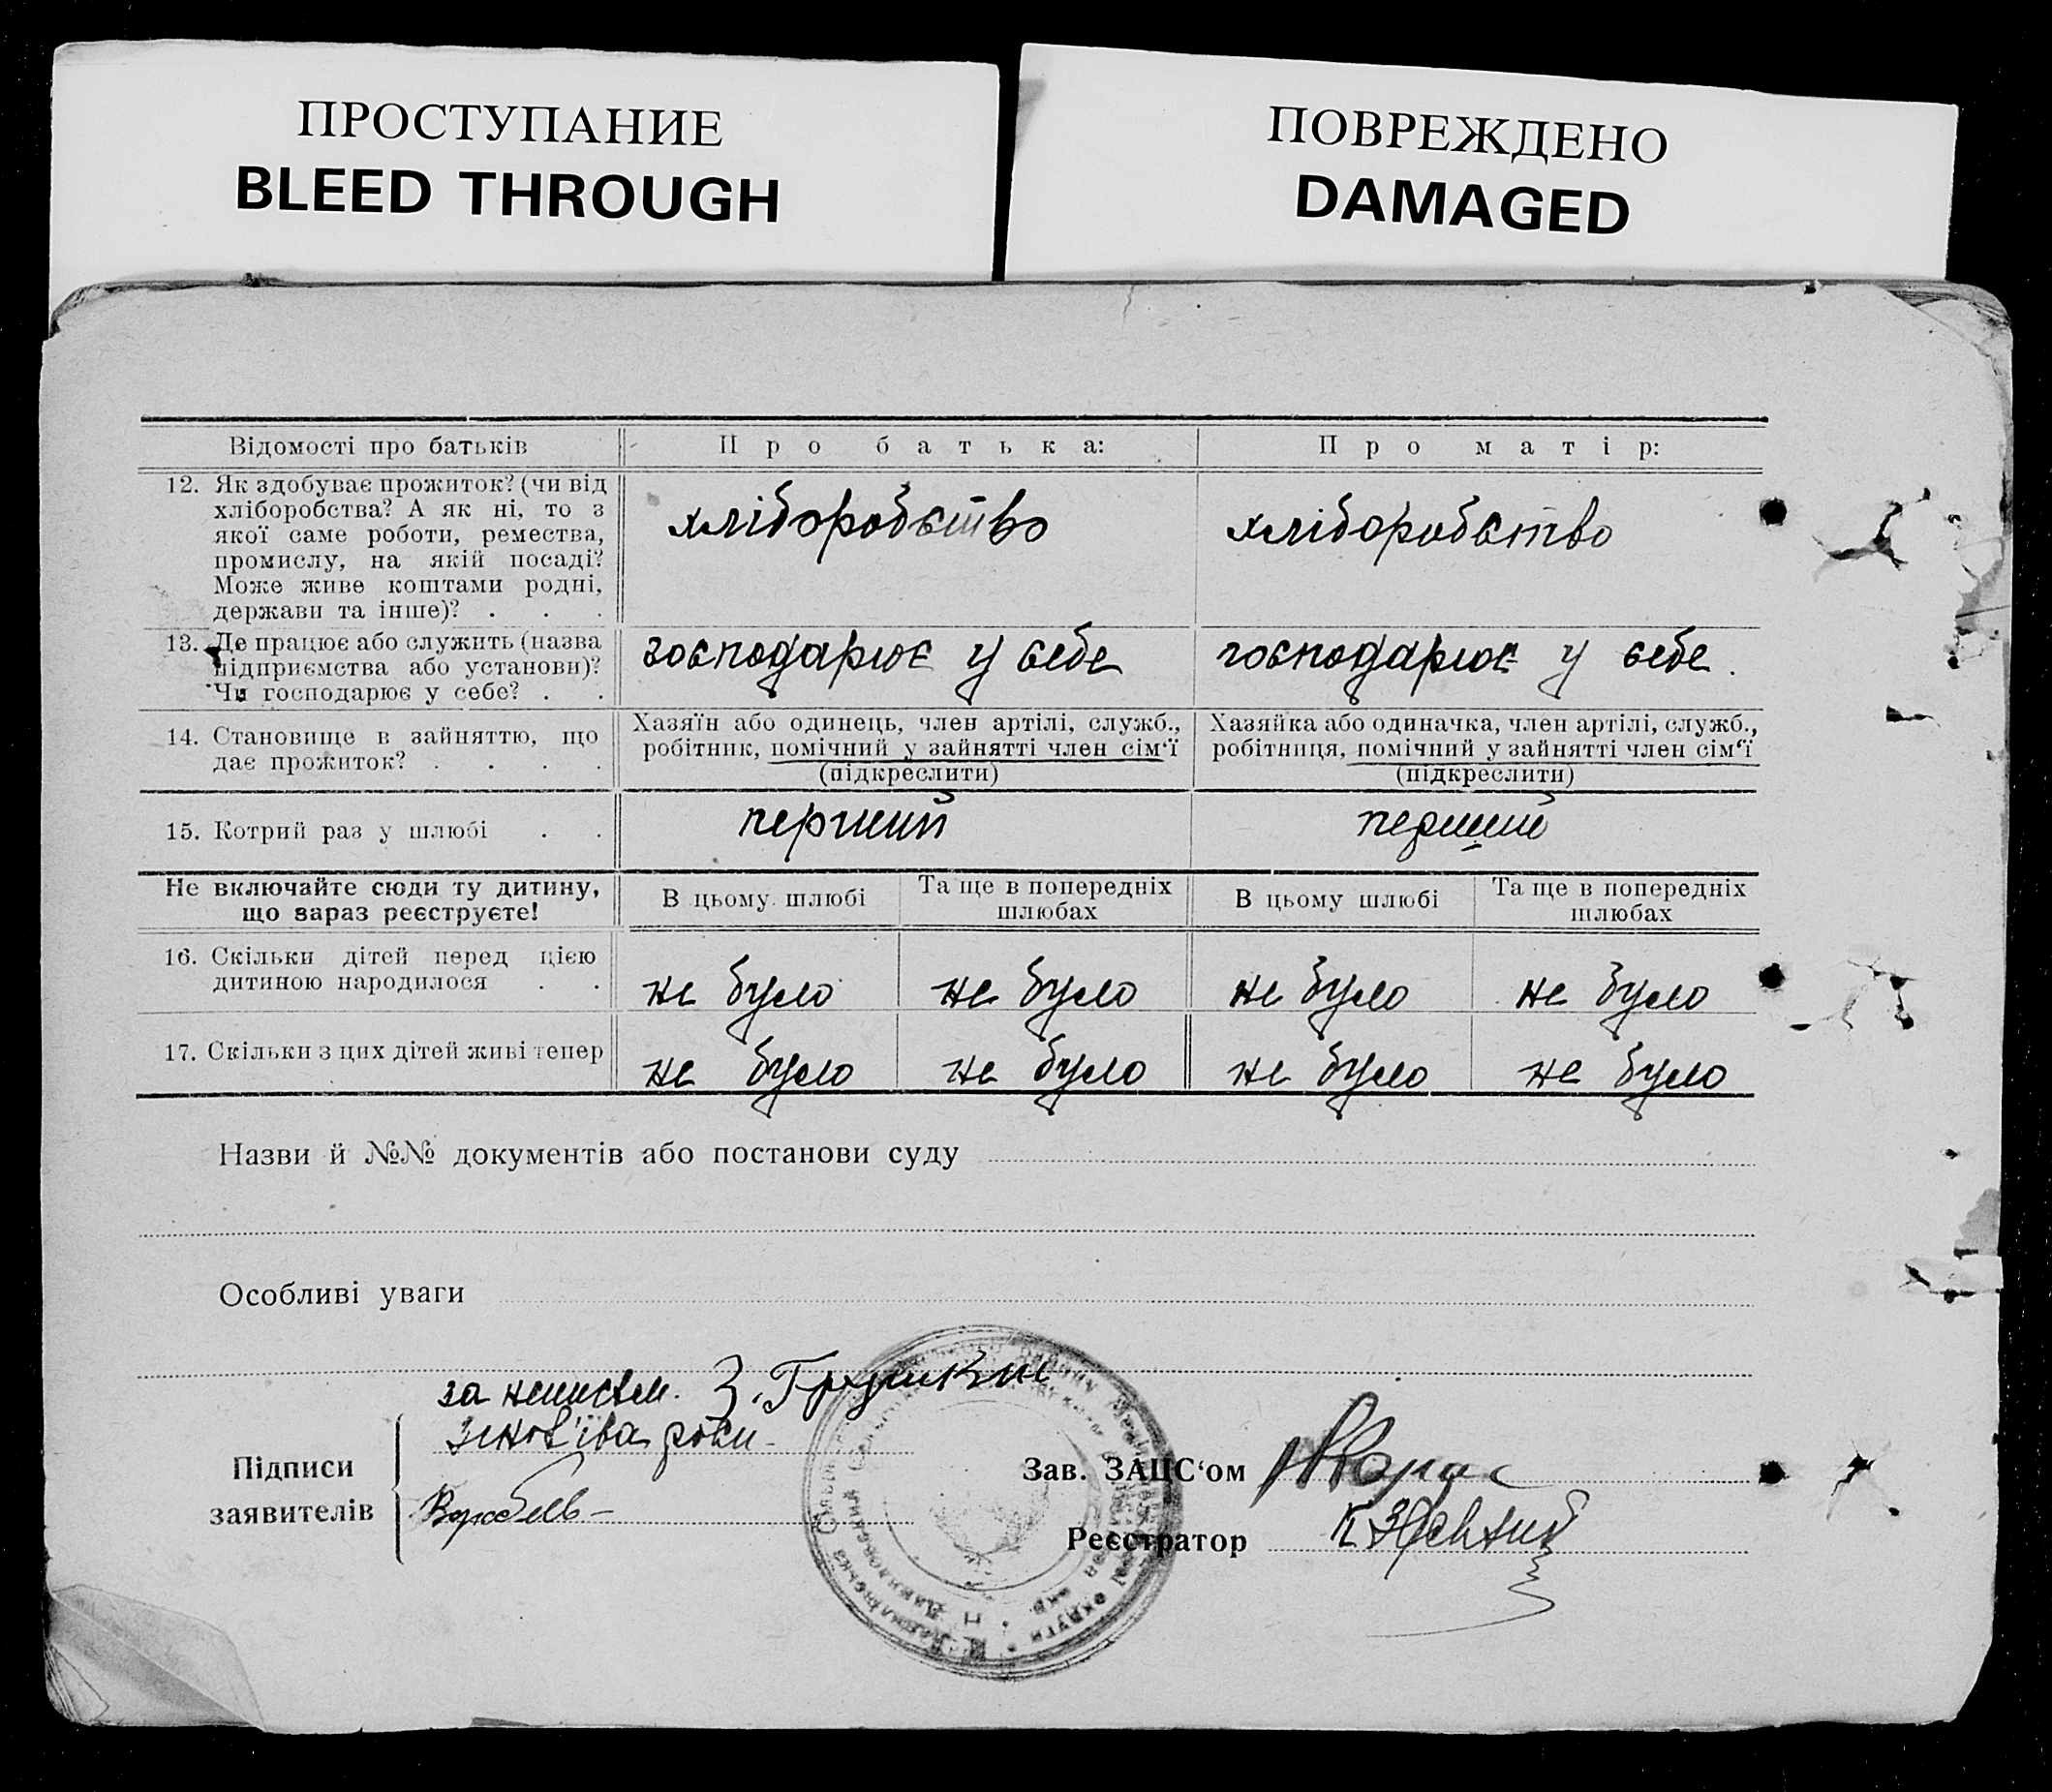 ПРОСТУПАНИЕ
BLEED THROUGH
ПОВРЕЖДЕНО
DAMAGED
Відомості про батьків
Про батька:
Про матір:
12. Як здобуває прожиток? (чи від
хліборобства? А як ні, то з
якої саме роботи, ремества,
промислу, на якій посаді?
Може живе коштами родні,
держави та інше)? . . .
хліборобство
хліборобство
13. Де працює або служить (назва
підприємства або установи)?
Чи господарює у себе? . .
господарює у себе
господарює у себе.
14. Становище в зайняттю, що
дає прожиток? . . . .
Хазяїн або одинець, член артілі, служб.,
робітник, помічний у зайнятті член сім‘ї
(підкреслити)
Хазяйка або одиначка, член артілі, служб.,
робітниця, помічний у зайнятті член сім‘ї
(підкреслити)
15. Котрий раз у шлюбі . .
перший
перший
Не включайте сюди ту дитину,
що зараз реєструєте!
В цьому шлюбі
Та ще в попередніх
шлюбах
В цьому шлюбі
Та ще в попередніх
шлюбах
16. Скільки дітей перед цією
дитиною народилося . .
не було
не було
не було
не було
17. Скільки з цих дітей живі тепер
не було
не було
не було
не було
Назви й №№ документів або постанови суду
Особливі уваги
за З.
Підписи
заявителів
Зав. ЗАЦС‘ом
Реєстратор